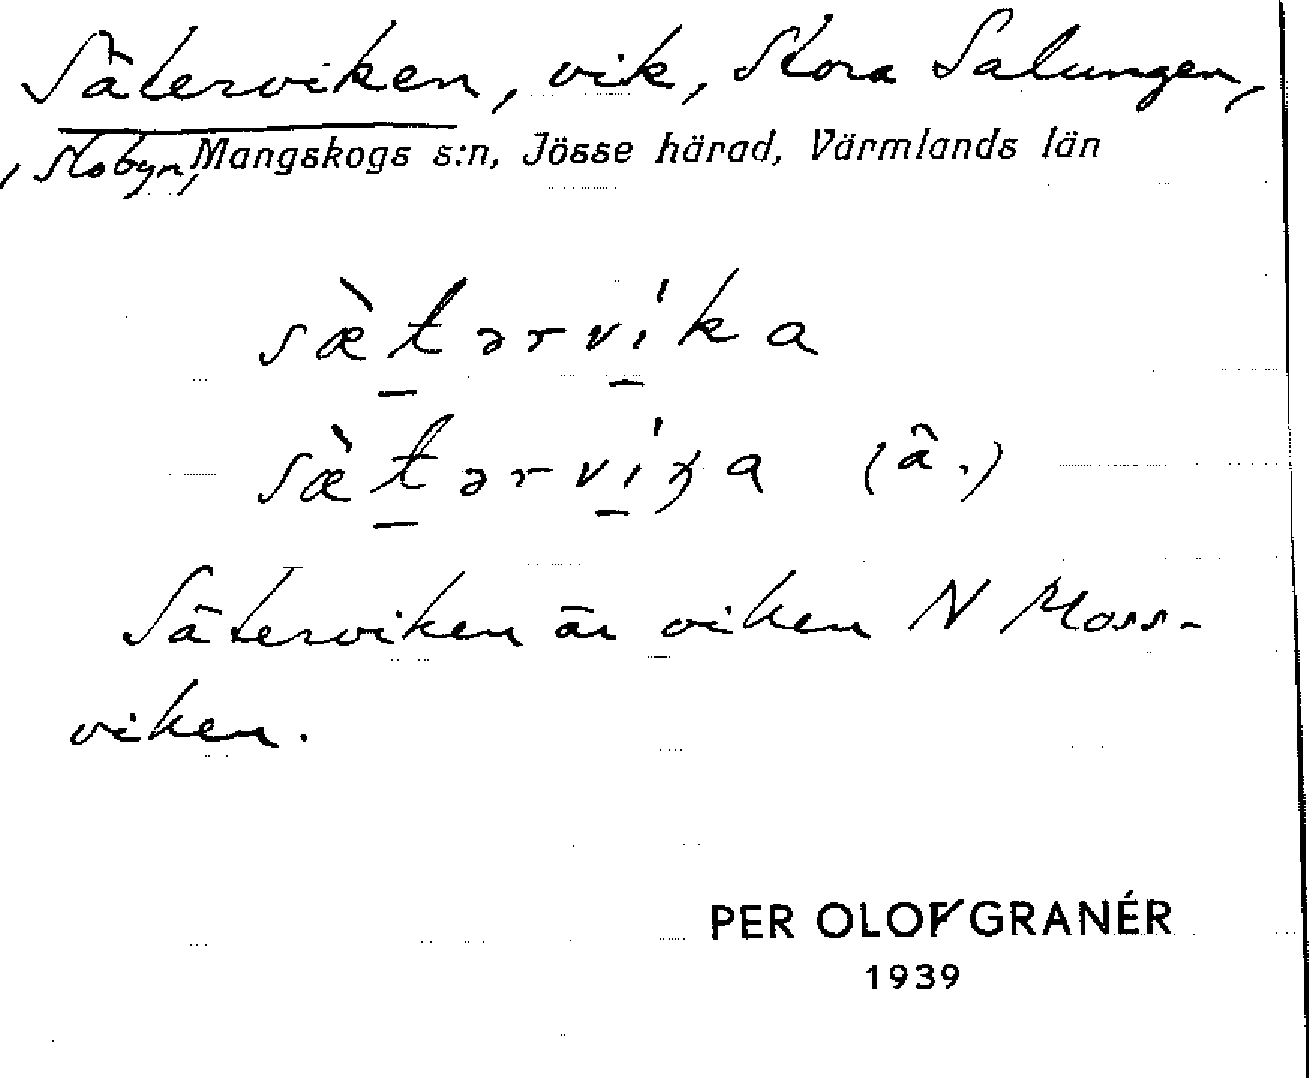 Säterviken, vik, Stora Salungen,
, Slobyn, Mangskogs s:n, Jösse härad, Värmlands län
sæ̀t̠ərvi̠̍ka
sæ̀t̠ərvi̠̍ꞧa (â.)
Säterviken är viken N Moss-
viken.
PER OLOF GRANÉR
1939